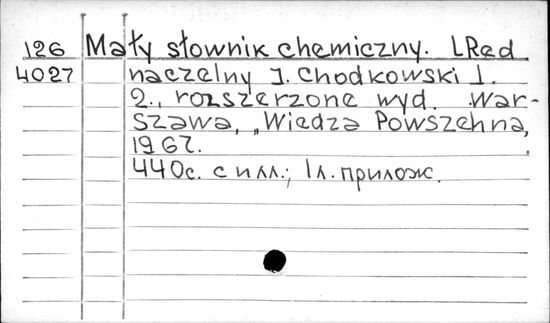 126 Mały słownik chemiczny. [Red
4027 naczelny J. Chodkowski].
2., rozszerzone wyd. War-
szawa, „Wiedza Powszechna,
1967.
440с. с илл.; 1л. прилож.